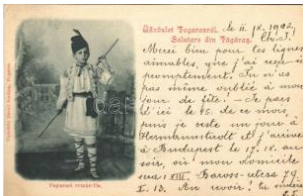 Üdvözlet Fogarasról.
Salutare din Făgăraș.
Merci bien pour les lignes
aimables, que j'ai reçu si
promptement. Tu n'as
pas même oublié à mon
jour de fête. - Je pars
d'ici le 15. de ce mois,
puis je reste un jour à
Hermannstadt et j'arrive
à Budapest le 17. IX. au
soir, où mon domicile
sera VIII. Baross-utcza
X. 13. Au revoir!